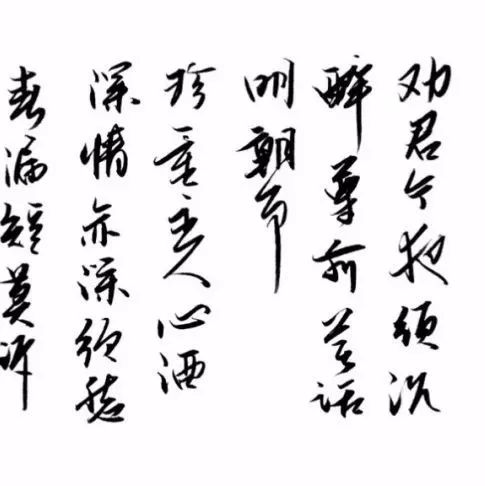 劝君今夜须沉
醉尊前莫话
明朝事
珍重主人心酒
深情亦深须愁
春漏短莫诉